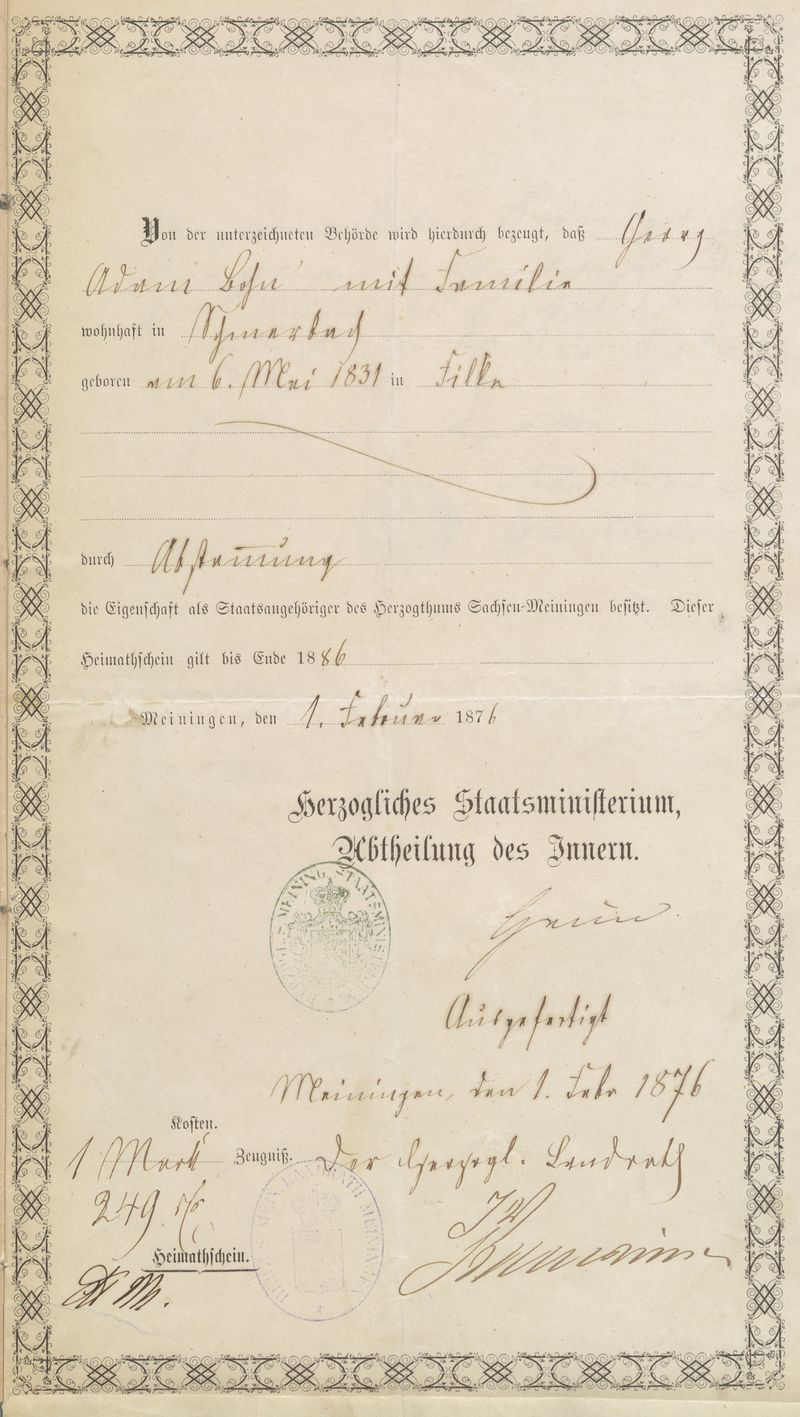 Von der unterzeichneten Behörde wird hierdurch bezeugt, daß Georg
Adam Bohn mit Familie
wohnhaft in Schmerbach
geboren am 6. Mai 1831 in Filke
durch Abstam̄ung
die Eigenschaft als Staatsangehöriger des Herzogthums Sachsen-Meiningen besitzt. Dieser
Heimathschein gilt bis Ende 1886
Meiningen, den 1. Februar 1876
Herzogliches Staatsministerium,
Abtheilung des Innern.
Ausgefertigt
Meiningen, den 1. Febr 1876
Kosten.
1 Mark Zeugniß. Der Herzogl. Landrath
249
Heimathschein.